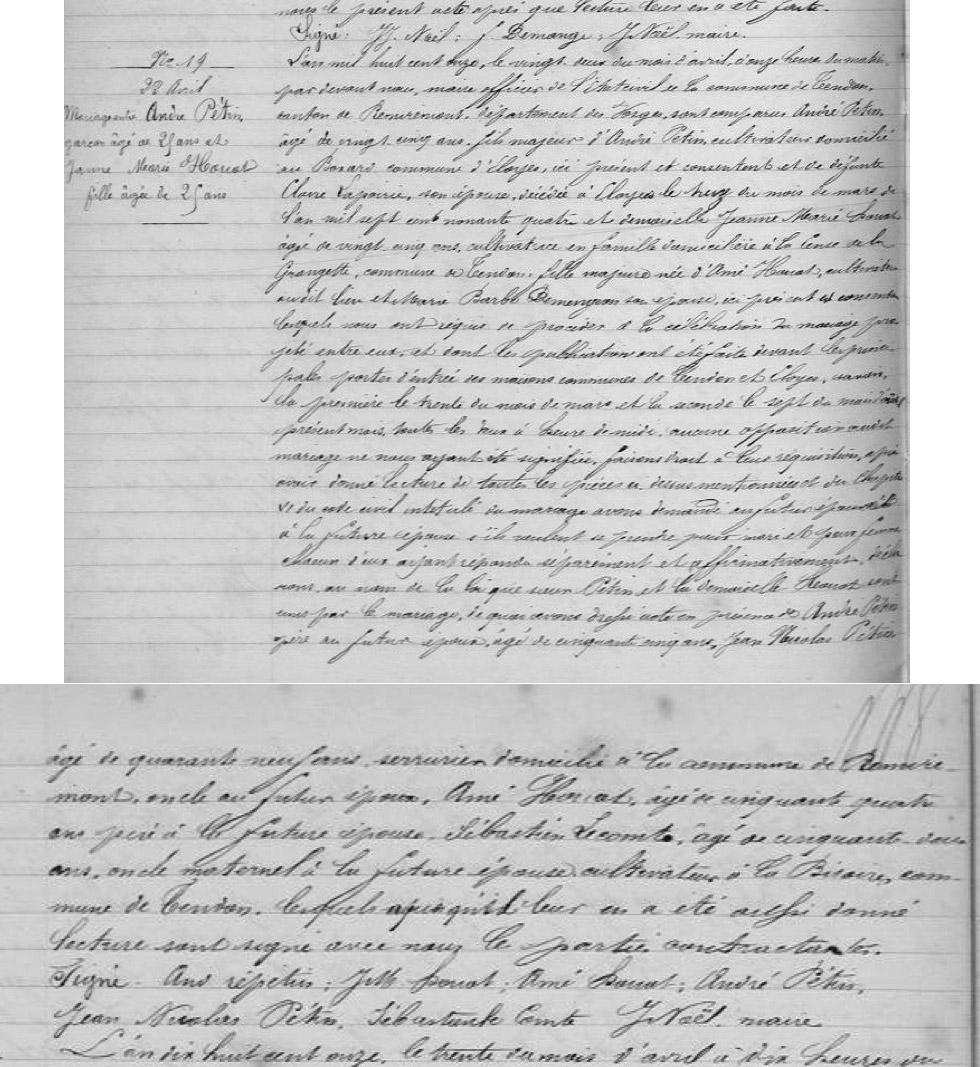 nous le présent acte après que lecture leur en a été faite.
Signé: JJ. Noël; J. Demange; J Noël maire.
No 19
22 Avril
Mariage entre André Pétin
garcon âgé de 25 ans et
Jeanne Marie Houot
fille âgée de 25 ans
L'an mil huit cent onze, le vingt deux du mois d'avril, à onze heures du matin,
par devant nous, maire officier de l'Etat civil de la commune de Tendon,
canton de Remiremont, département des Vosges, sont comparus André Pétin
âgé de vingt cinq ans, fils majeur d'André Pétin cultivateur domicilié
au commune d'Eloyes, ici présent et consentent et de défunte
Claire Lapoirie, son épouse, décédée à Eloyes le treize du mois de mars de
l'an mil sept cent nonante quatre et demoiselle Jeanne Marie Houot
âgée de vingt cinq ans, cultivatrice en famille domiciliée à la Cense de la
Grangette, commune de Tendon, fille majeure née d'Amé Houot, cultivateur
audit lieu et Marie Barbe Demengeon son épouse, ici présent et consentent
lesquels nous ont requis de procéder à la célébration du mariage pro-
jeté entre eux, et dont les publication ont été faite devant les princi-
pales portes d'entrée des maisons communes de Tendon et Eloyes, savoir,
la première le trente du mois de mars et la seconde le sept du mois d'avril
présent mois, toutes les deux à heure de midi, aucune opposition audit
mariage ne nous ayant été signifiée, faisons droit à leur réquisition, après
avoir donné lecture de toutes les pièces ci dessus mentionnées et du Chapitre
VI du code civil intitulé du mariage avons demandé au futur époux et
à la future épouse s'ils veulent se prendre pour mari et pour femme
chacun d'eux ayant répondu séparément et affirmativement, décla-
rons au nom de la loi que sieur Pétin et la demoiselle Houot sont
unis par le mariage, de quoi avons dressé acte en présence de André Pétin
père au futur époux, âgé de cinquante cinq ans, Jean Nicolas Pétin
âgé de quarante neuf ans, serrurier domicilié à la commune de Remire-
mont, oncle au futur époux, Amé Houot, âgé de cinquante quatre
ans père à la future épouse, Sébastien Lecomte, âgé de cinquante deux
ans, oncle maternel à la future épouse cultivateur à la com-
mune de Tendon, lesquels après qu'il leur en a été aussi donné
lecture sont signé avec nous le partie contractante.
Signé: And répetin; JMh houot; Amé houot; André Pétin,
Jean Nicolas Pétin, Sébastienle Comte J Noël, maire
L'an dix huit cent onze, le trente du mois d'avril à dix heures du